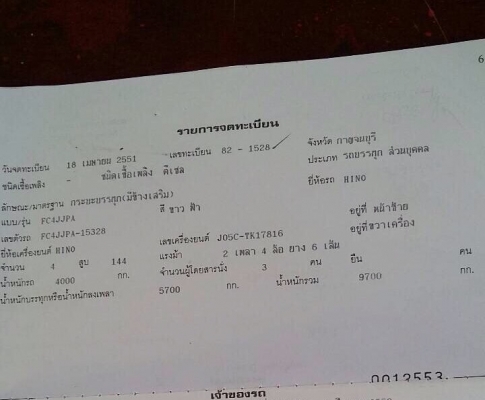 6
รายการจดทะเบียน
วันจดทะเบียน 18 เมษายน 2551 เลขทะเบียน 82 - 1528 จังหวัด กาญจนบุรี
ชนิดเชื้อเพลิง - ชนิดเชื้อเพลิง ดีเซล ประเภท รถบรรทุก ส่วนบุคคล
ลักษณะ/มาตรฐาน กระบะบรรทุก(มีข้างเสริม) ยี่ห้อรถ HINO
แบบ/รุ่น FC4JJPA สี ขาว ฟ้า
เลขตัวรถ FC4JJPA-15328 อยู่ที่ หน้าซ้าย
ยี่ห้อเครื่องยนต์ HINO เลขเครื่องยนต์ J05C-TK17816 อยู่ที่ขวาเครื่อง
จำนวน 4 สูบ 144 แรงม้า 2 เพลา 4 ล้อ ยาง 6 เส้น
น้ำหนักรถ 4000 กก. จำนวนผู้โดยสารนั่ง 3 คน ยืน คน
น้ำหนักบรรทุกหรือน้ำหนักลงเพลา 5700 กก. น้ำหนักรวม 9700 กก.
0013553
เจ้าของรถ